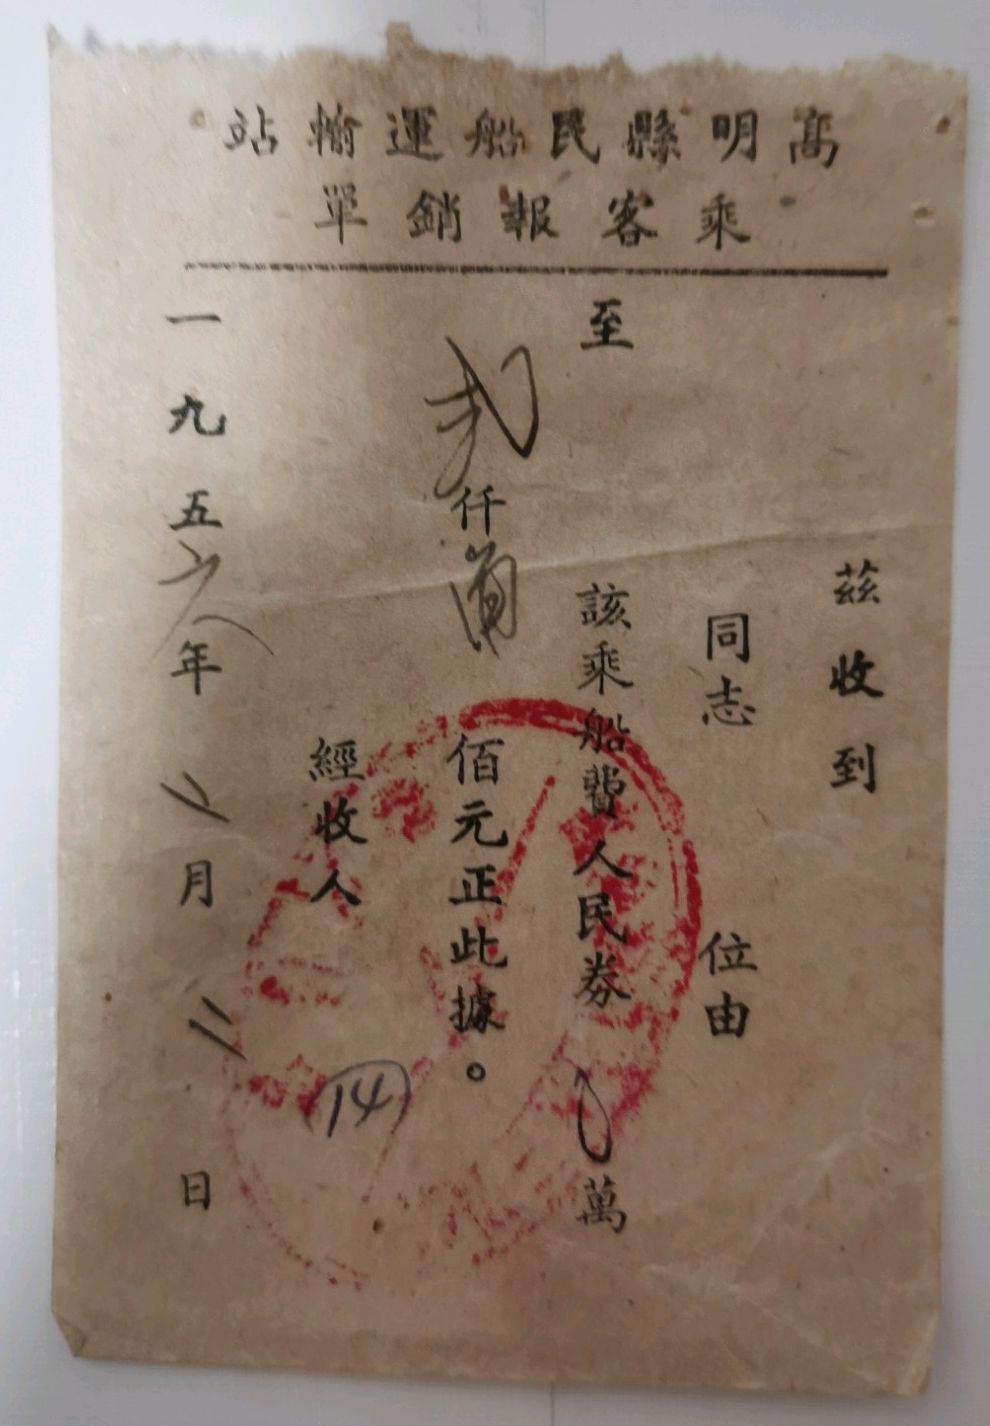 高明縣民船運輸站
乘客報銷單
茲收到
同志 位由
至 該乘船費人民券 0 萬
弍仟 佰元正此據。
經收人 14
一九五六年 八月 二日